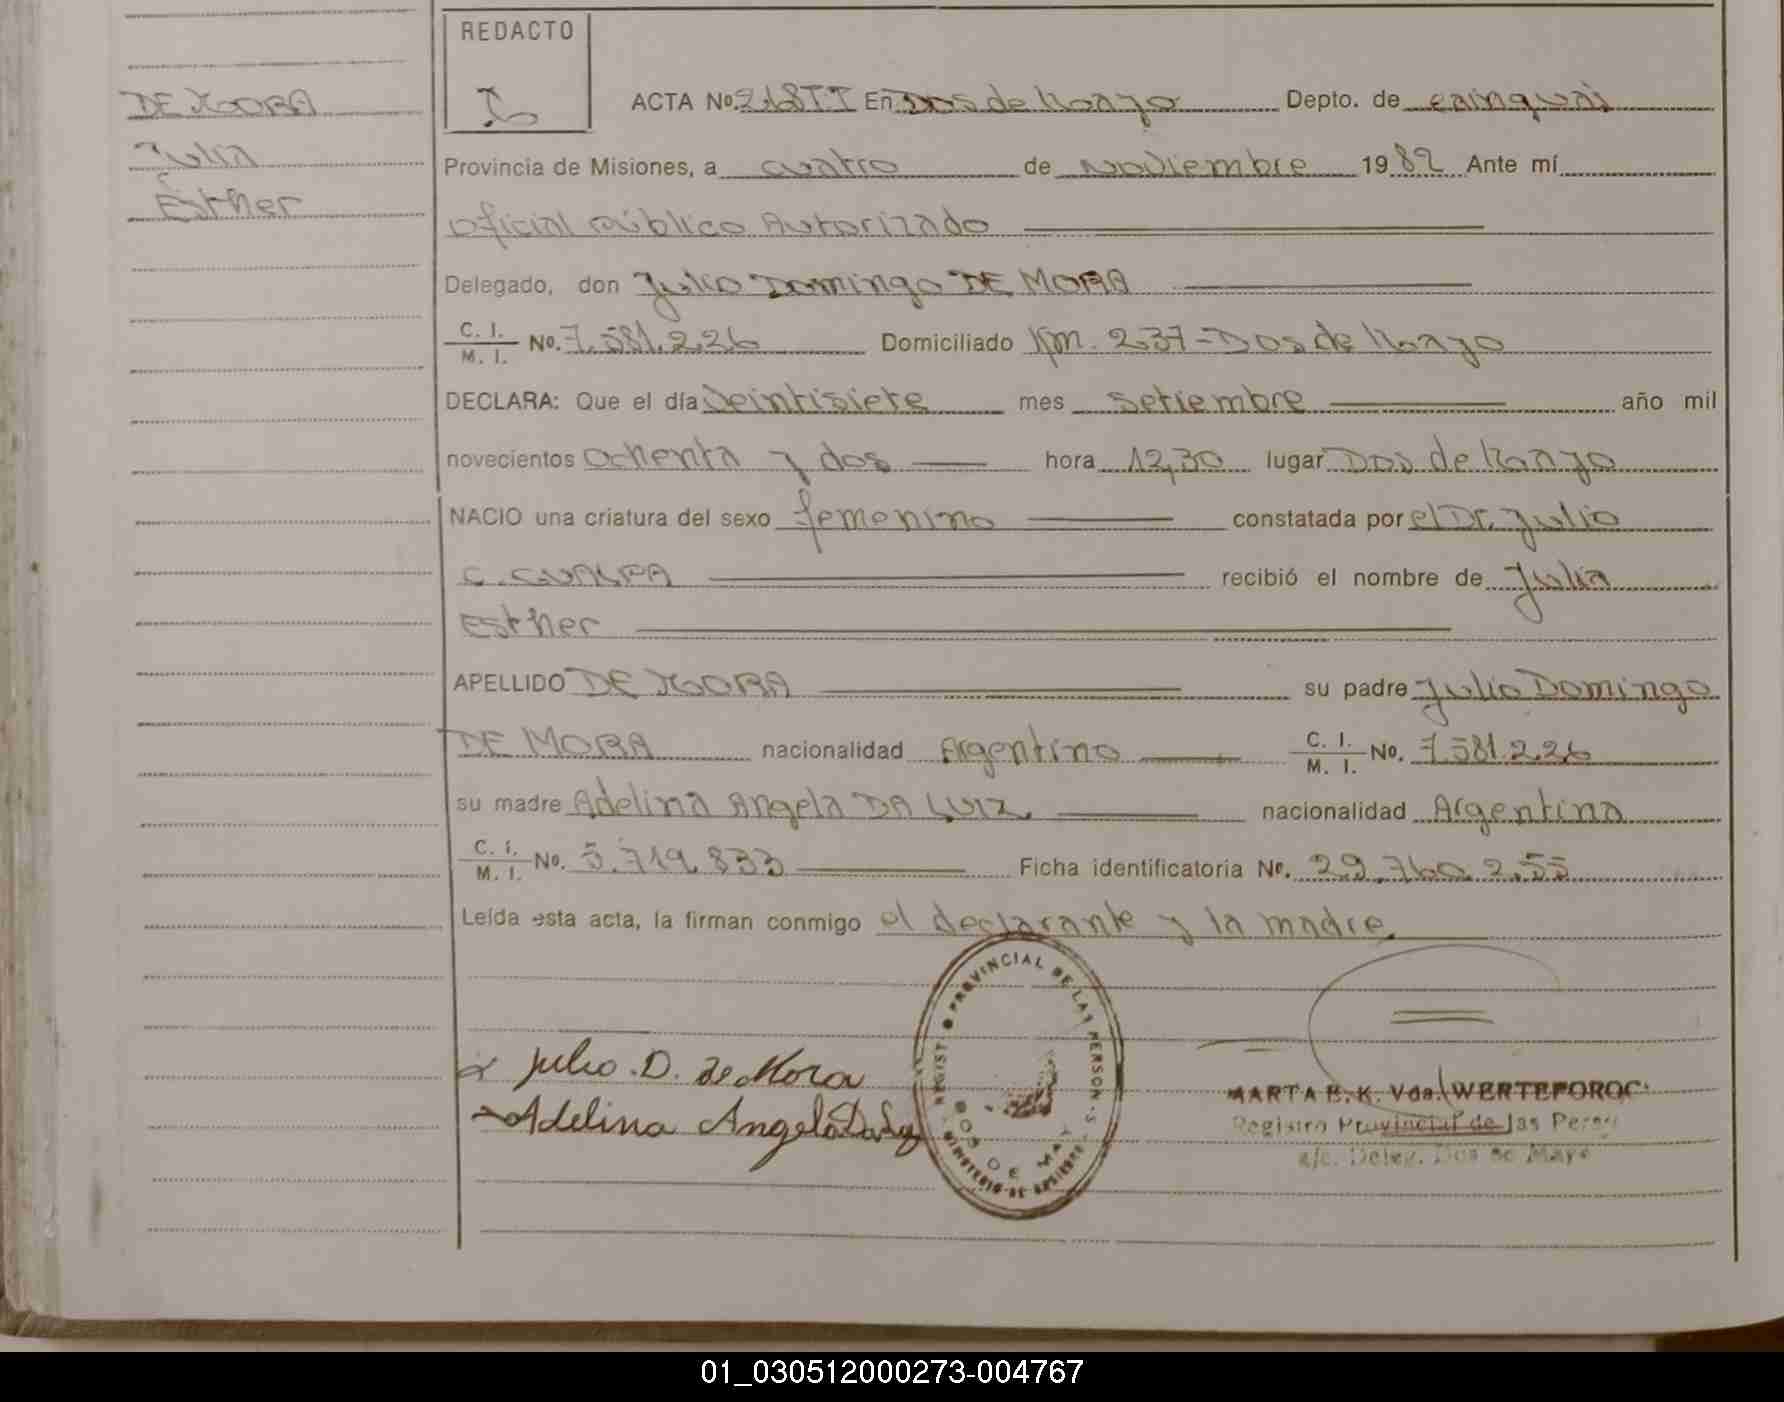 REDACTO
DE MORA
Julia
Esther
ACTA No. 268 TI En Dos de Mayo Depto. de cainguas
Provincia de Misiones, a cuatro de noviembre 1982 Ante mí
Oficial Público Autorizado
Delegado, don Julio Domingo DE MORA
C. I. / M. I. No. 7.581.226 Domiciliado Km. 237 - Dos de Mayo
DECLARA: Que el día veintisiete mes setiembre año mil
novecientos ochenta y dos hora 12,30 lugar Dos de Mayo
NACIO una criatura del sexo femenino constatada por el Dr. Julio
C. recibió el nombre de Julia
Esther
APELLIDO DE MORA su padre Julio Domingo
DE MORA nacionalidad Argentino C. I. / M. I. No. 7.581.226
su madre Adelina Angela DA LUIZ nacionalidad Argentina
C. I. / M. I. No. 5.719.833 Ficha identificatoria No. 29.760.255
Leída esta acta, la firman conmigo el declarante y la madre.
Julio. D. de Mora
Adelina Angela
REGIST PROVINCIAL DE LAS PERSON S
DOS DE MAY
MINISTERIO DE GOBIERNO
MARTA E. K. Vda. WERTEFOROC
Registro Provincial de las Perso
a/c. Deleg. Dos de Mayo
01_030512000273-004767